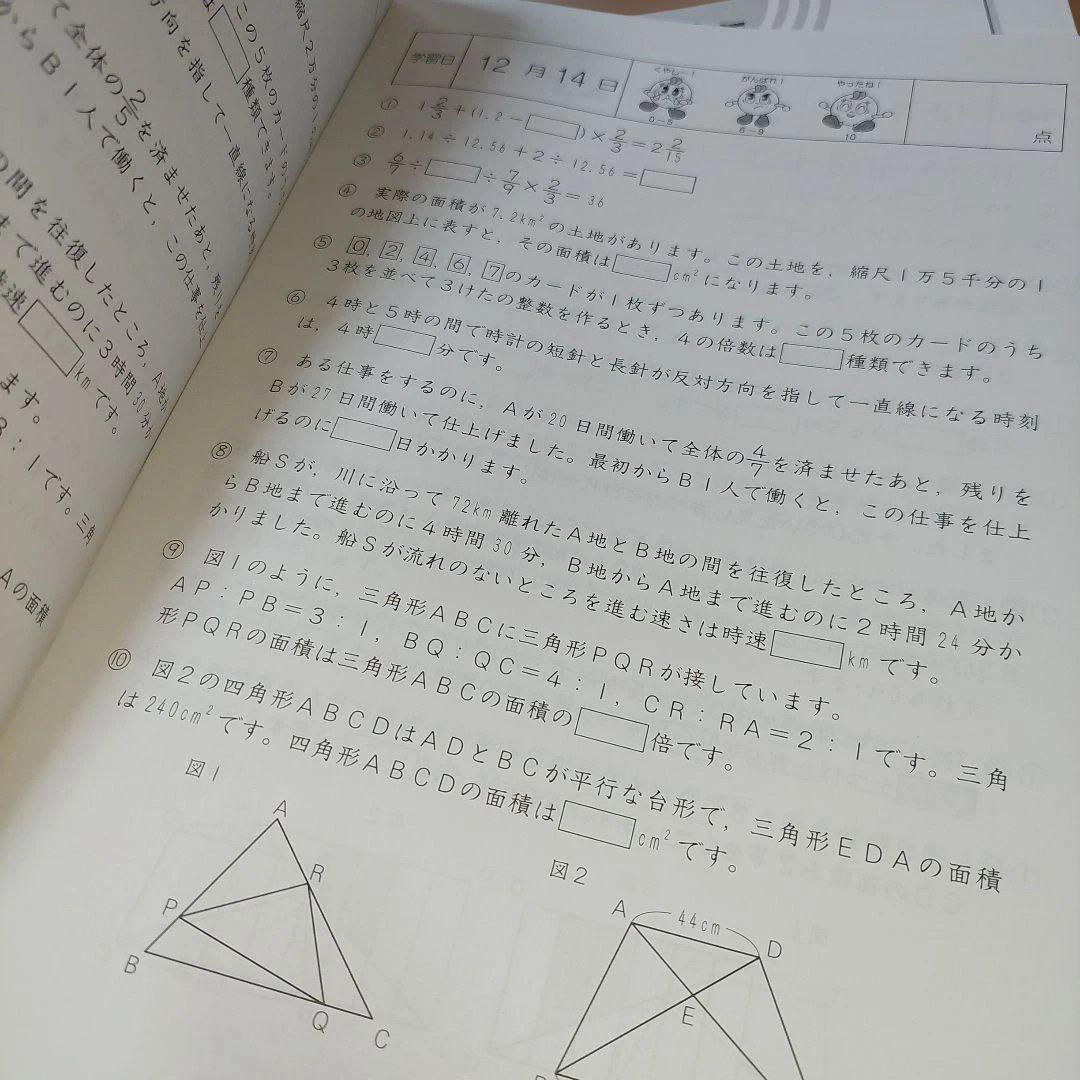 縮尺2万分の1
この5枚のカードの
種類できます。
方向を指して一直線になる時刻
て全体の2/5を済ませたあと，残りを
からB1人で働くと，この仕事を仕上
の間を往復したところ，A地か
まで進むのに3時間30分か
時速□kmです。
ます。
B：1です。三角
Aの面積
学習日 12月14日 くやしー！ 0－5 がんばれ！ 6－9 やったね！ 10 点
① 1 2/3＋(1.2－□)×2/3＝2 2/15
② 1.14÷12.56＋2÷12.56＝□
③ 6/7÷□÷7/9×2/3＝36
④ 実際の面積が7.2km²の土地があります。この土地を，縮尺1万5千分の1
の地図上に表すと，その面積は□cm²になります。
⑤ 0，2，4，6，7のカードが1枚ずつあります。この5枚のカードのうち
3枚を並べて3けたの整数を作るとき，4の倍数は□種類できます。
⑥ 4時と5時の間で時計の短針と長針が反対方向を指して一直線になる時刻
は，4時□分です。
⑦ ある仕事をするのに，Aが20日間働いて全体の4/7を済ませたあと，残りを
Bが27日間働いて仕上げました。最初からB1人で働くと，この仕事を仕上
げるのに□日かかります。
⑧ 船Sが，川に沿って72km離れたA地とB地の間を往復したところ，A地か
らB地まで進むのに4時間30分，B地からA地まで進むのに2時間24分か
かりました。船Sが流れのないところを進む速さは時速□kmです。
⑨ 図1のように，三角形ABCに三角形PQRが接しています。
AP：PB＝3：1，BQ：QC＝4：1，CR：RA＝2：1です。三角
形PQRの面積は三角形ABCの面積の□倍です。
⑩ 図2の四角形ABCDはADとBCが平行な台形で，三角形EDAの面積
は240cm²です。四角形ABCDの面積は□cm²です。
図1
A
R
P
B
Q
C
図2
A
44cm
D
E